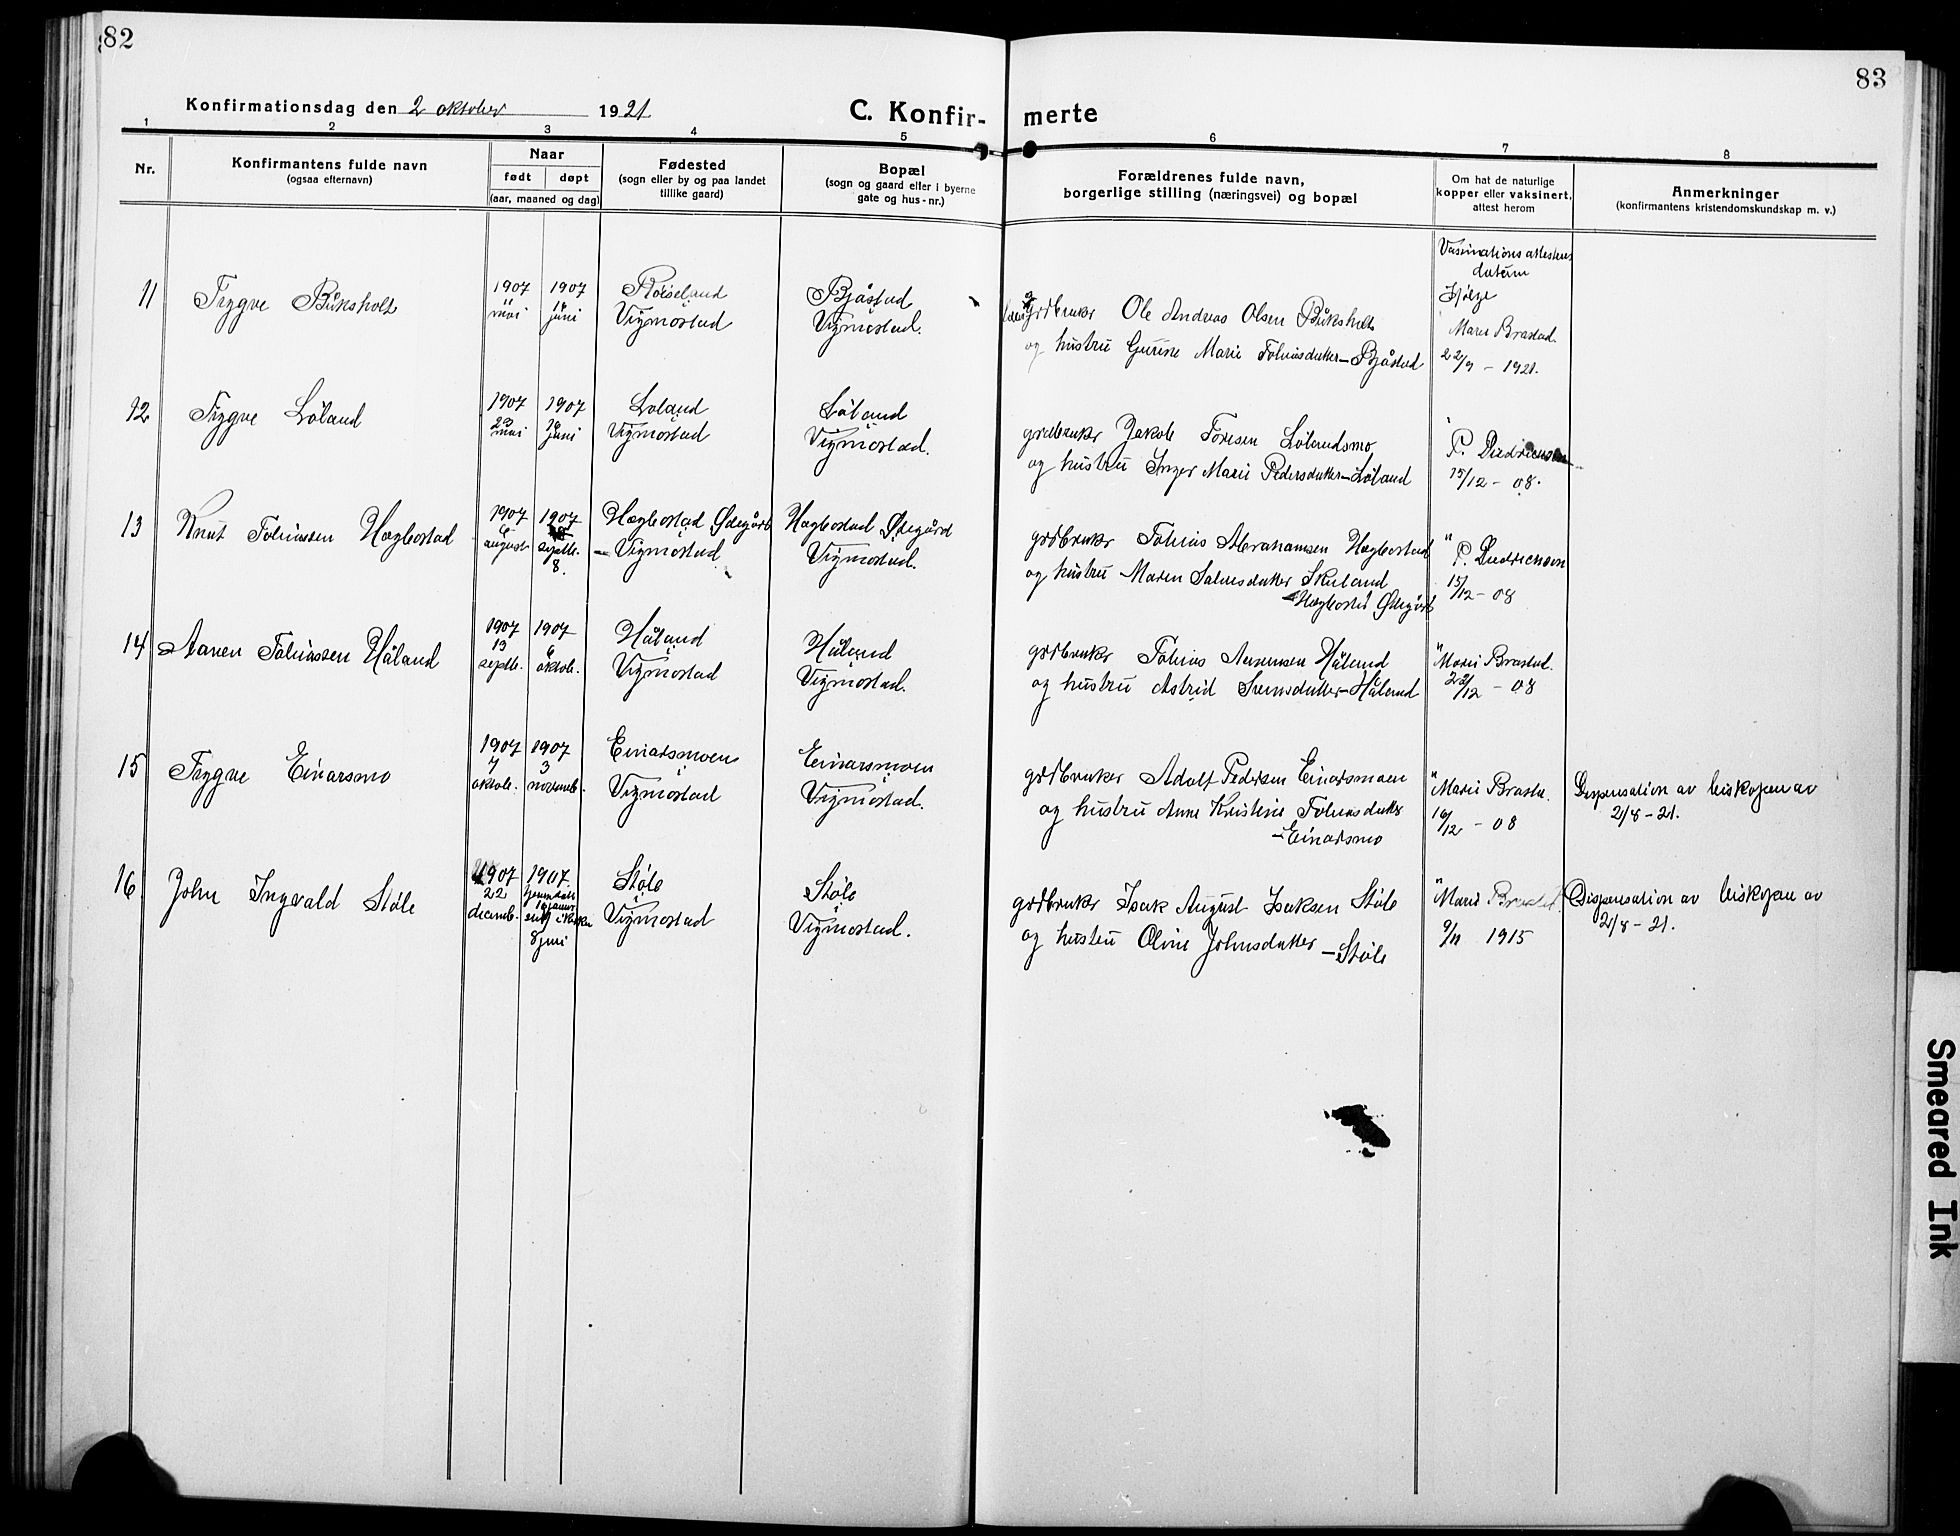 82
83
Konfirmationsdag den 2 oktober 1921
C. Konfir- merte
1 2 3 4 5 6 7 8
Nr.
Konfirmantens fulde navn
(ogsaa efternavn)
Naar
født døpt
(aar, maaned og dag)
Fødested
(sogn eller by og paa landet
tillike gaard)
Bopæl
(sogn og gaard eller i byerne
gate og hus-nr.)
Forældrenes fulde navn,
borgerlige stilling (næringsvei) og bopæl
Om hat de naturlige
kopper eller vaksinert,
attest herom
Anmerkninger
(konfirmantens kristendomskundskap m. v.)
11 Trygve Buksholt
1907
mai
1907
16
juni
Røiseland
Vigmostad
Bjåstad
Vigmostad.
grdbruker Ole Andreas Olsen Buksholt
og hustru Gurine Marie Tobiasdatter – Bjåstad
Vaksinations attestens
datum
Hølje
Marie Brastad.
22/9 – 1921.
12 Trygve Løland
1907
29
mai
1907
16
juni
Løland
Vigmostad
Løland
Vigmostad.
grdbruker Jakob Toresen Lølandsmo
og hustru Inger Marie Pedersdatter – Løland
" P. Diedrichsen
15/12 – 08.
13 Knut Tobiassen Hægbostad
1907
6
august
1907
septb.
8.
Hægbostad Ødegård
– Vigmostad
Hægbostad Ødegård
Vigmostad.
grdbruker Tobias Abrahamsen Hægbostad
og hustru Maren Salvesdatter Skuland
– Hægbostad Ødegård
" P. Diedrichsen
15/12 – 08
14 Aanen Tobiassen Håland
1907
13
septb.
1907
6
oktob.
Håland
Vigmostad
Håland
Vigmostad.
grdbruker Tobias Aanensen Håland
og hustru Astrid Svensdatter – Håland
" Marie Brastad.
22/12 – 08
15 Trygve Einarsmo
1907
7
oktob.
1907
3
novemb.
Einarsmoen
Vigmostad
Einarsmoen
Vigmostad.
grdbruker Adolf Pedersen Einarsmoen
og hustru Anne Kristine Tobiasdatter
– Einarsmo
" Marie Brasta.
16/12 – 08
Dispensation av biskopen av
2/8 – 21.
16 John Ingvald Støle
1907
22
decemb.
1907.
hjemdøbt
8 juni
Støle
Vigmostad
Støle
Vigmostad.
grdbruker Isak August Isaksen Støle
og hustru Oline Johnsdatter – Støle
" Marie Brastad.
9/11 1915
Dispensation av biskopen av
2/8 – 21.
Smeared Ink